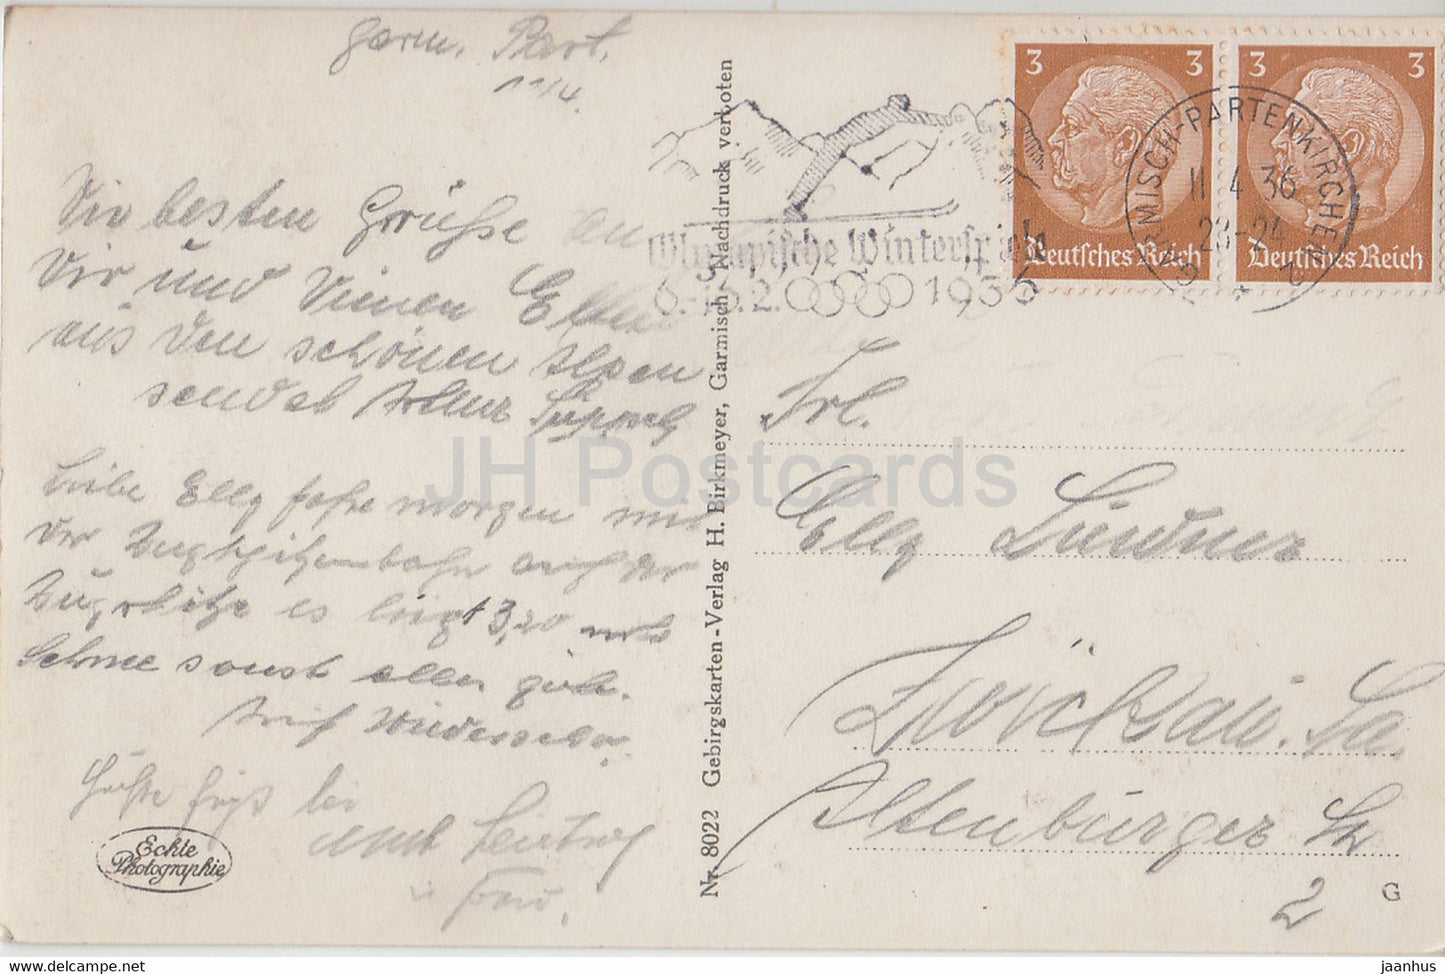 Garm. Part.
11/4.
Die besten Grüsse an
Dir und Deinen Eltern
aus den schönen Alpen
sendet Arthur
Liebe Elly fahre morgen mit
der Zugspitzenbahn auf der
Zugspitze es liegt 3,20 mtr
Schnee sonst alles gut.
Auf Wiedersehn.
Echte
Photographie
Nr. 8022 Gebirgskarten-Verlag H. Birkmeyer, Garmisch. Nachdruck verboten
Olympische Winterspiele
6.-16.2. 1936
GARMISCH-PARTENKIRCHEN
11 4 36
23-24
* 2
3 3
Deutsches Reich
3 3
Deutsches Reich
Frl.
Elly Lindner
Altenburger Str
2
G
JH Postcards
https://www.jhpostcards.com
jaanhus